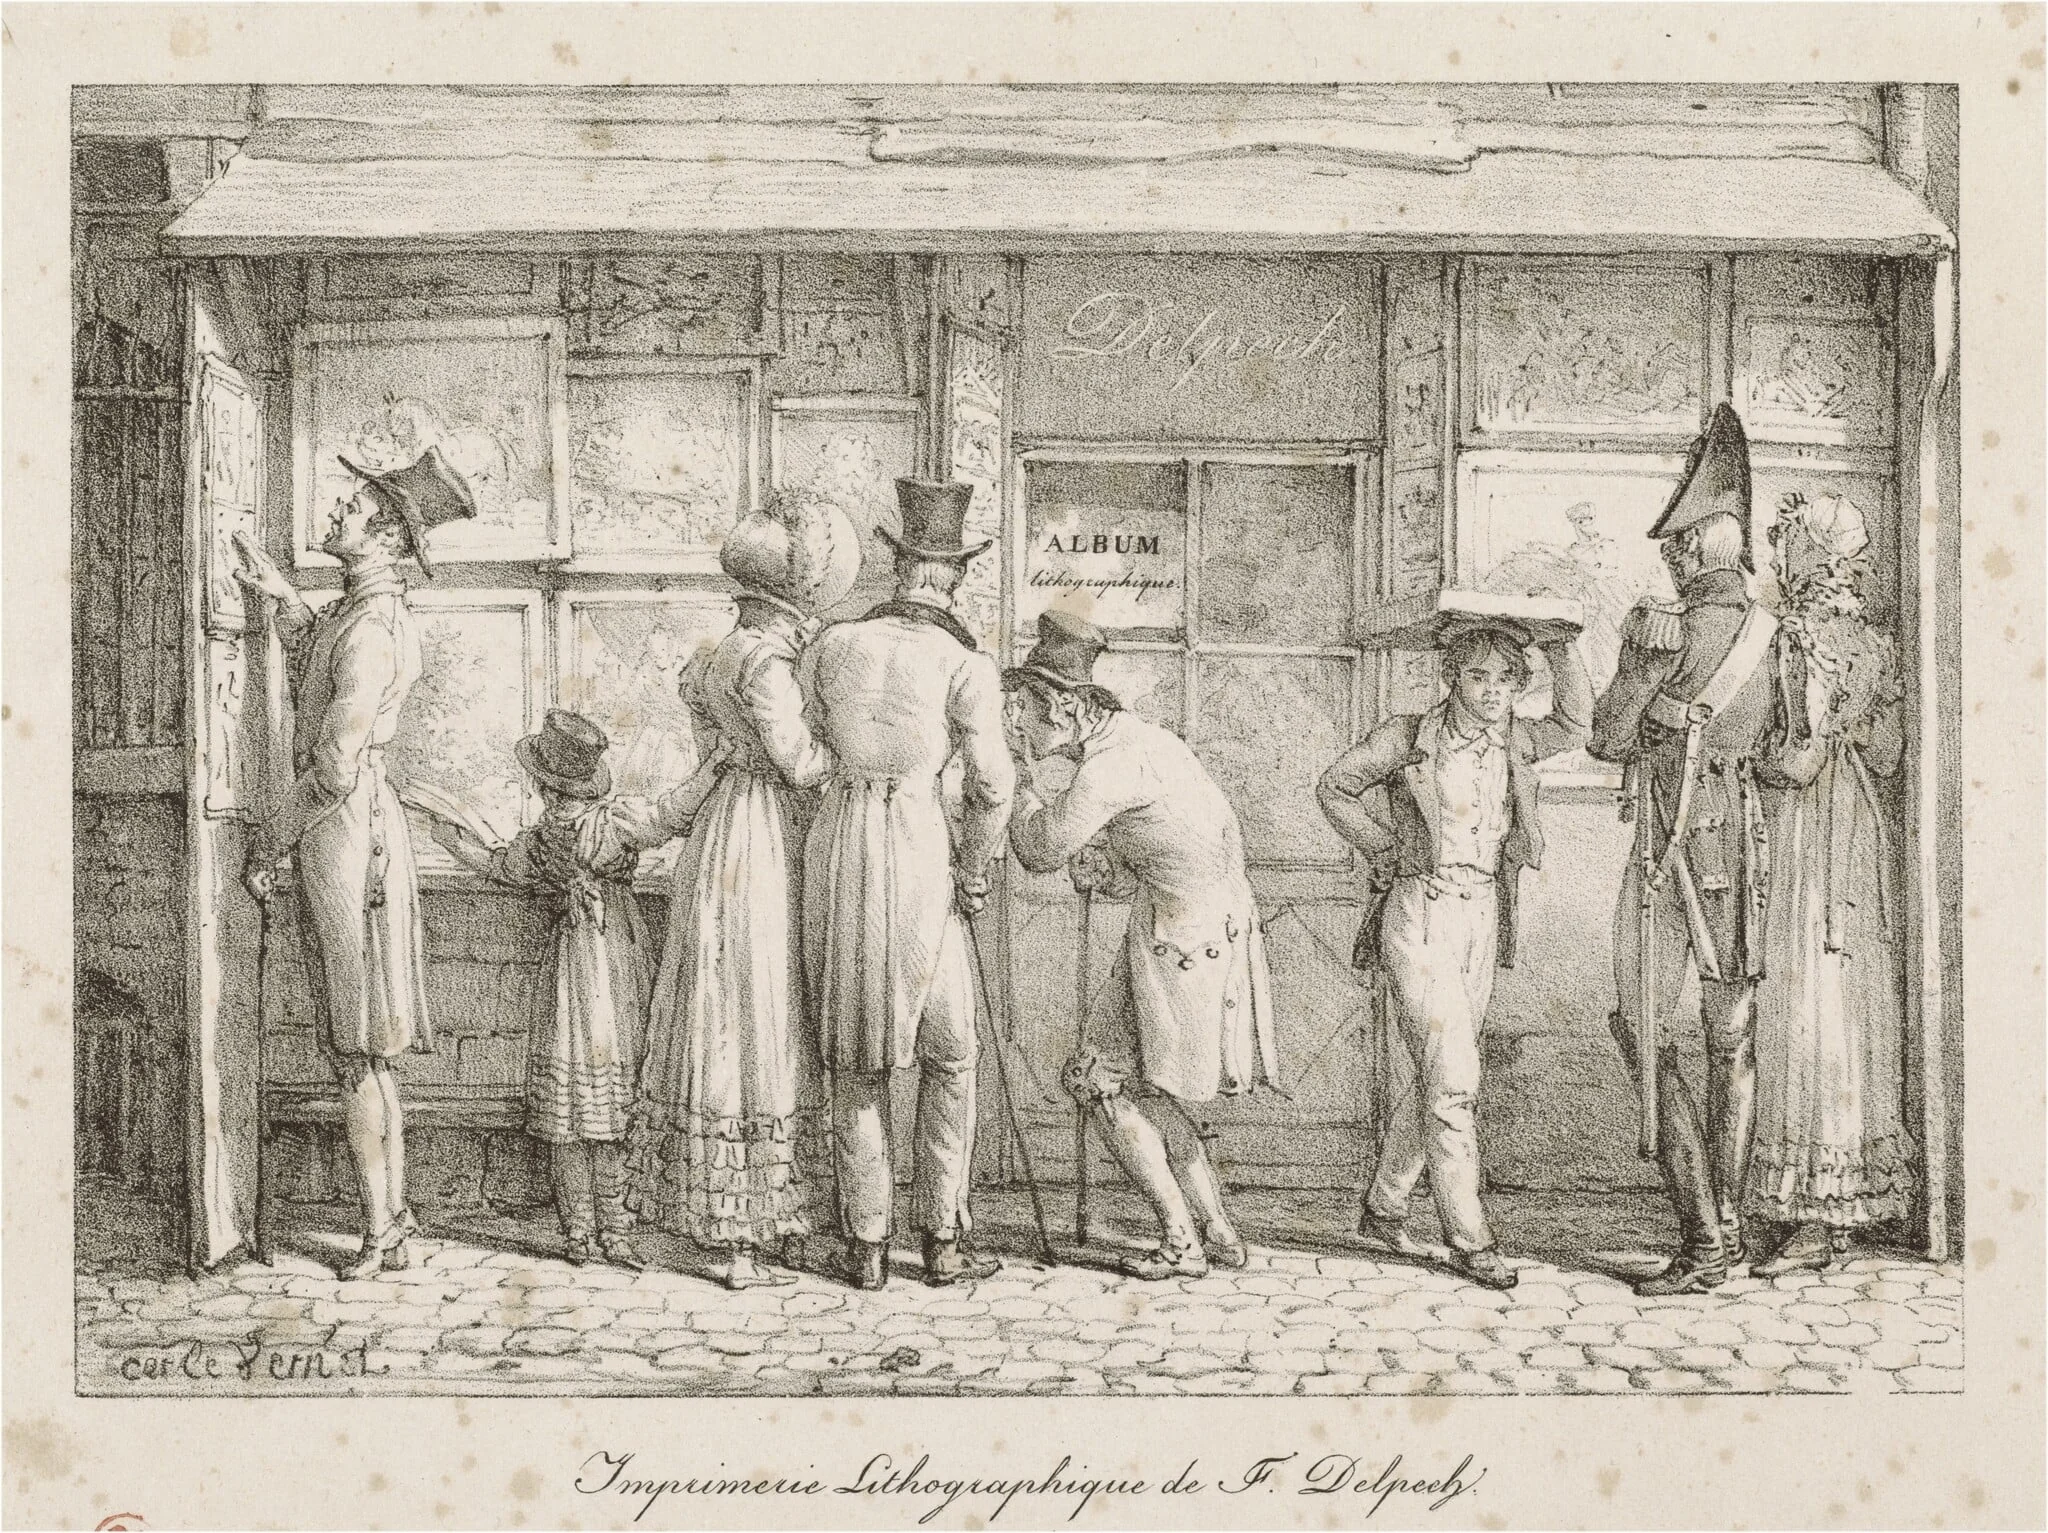 Delpech
ALBUM
lithographique.
carle Vernet
Imprimerie Lithographique de F. Delpech.